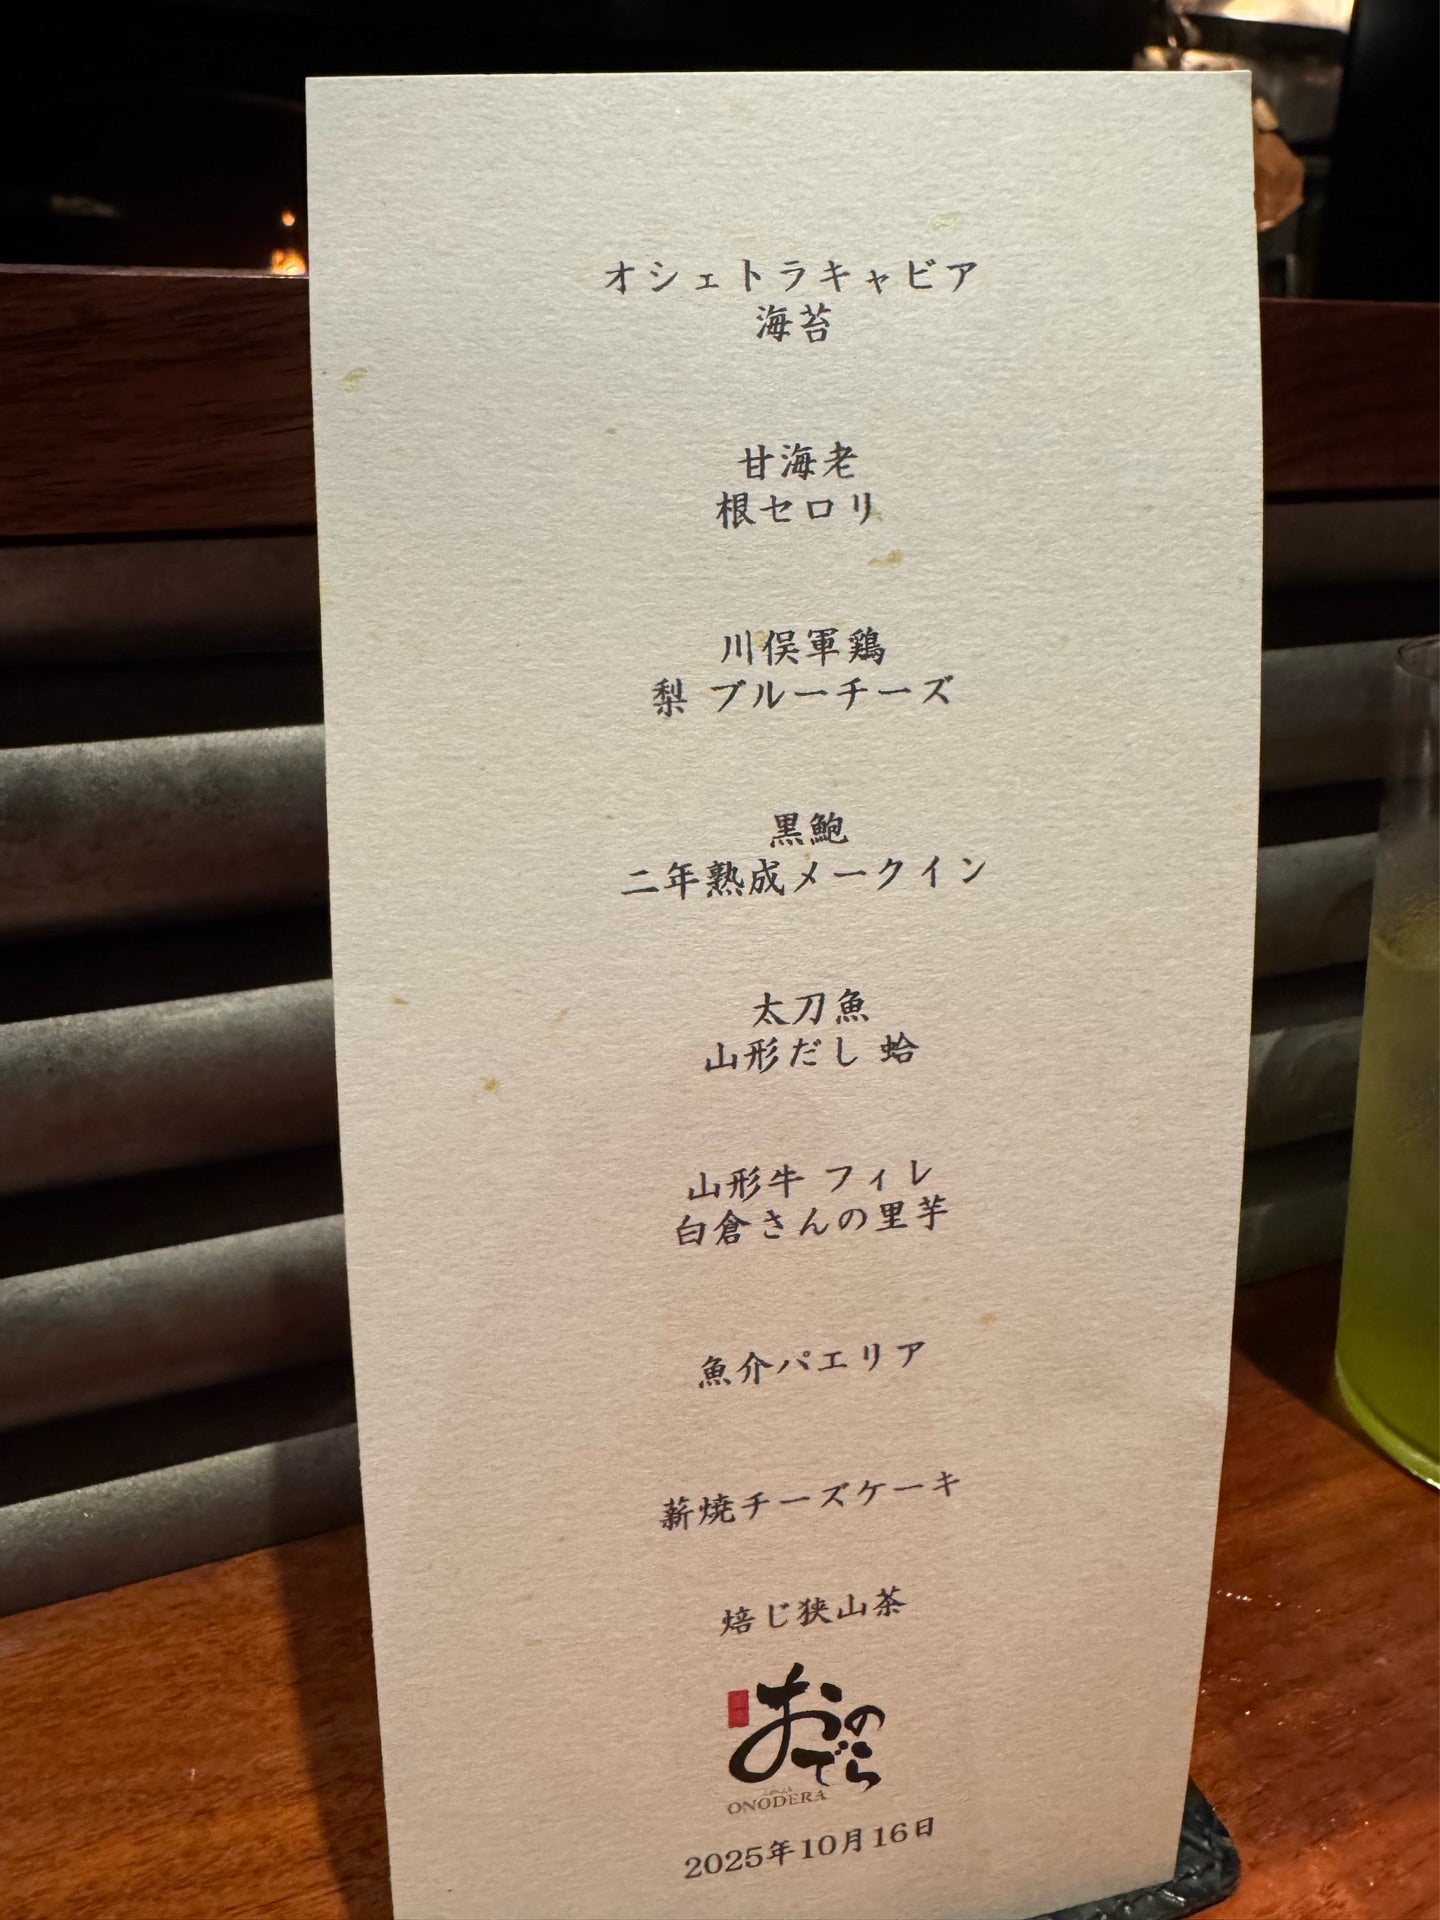 オシェトラキャビア
海苔
甘海老
根セロリ
川俣軍鶏
梨 ブルーチーズ
黒鮑
二年熟成メークイン
太刀魚
山形だし 蛤
山形牛 フィレ
白倉さんの里芋
魚介パエリア
薪焼チーズケーキ
焙じ狭山茶
おのでら
ONODERA
2025年10月16日